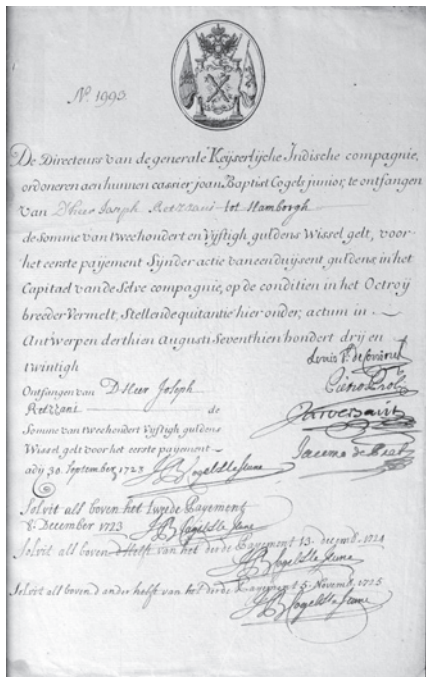 N. 1993.
De Directeurs van de generale Keyserlijcke Indische compagnie,
ordoneren aen hunnen cassier joan Baptist Cogels junior, te ontfangen
van D'heer Joseph Rezzani tot Hamborgh
de Somme van tweehondert en Vyftigh guldens Wissel gelt, voor
het eerste payement Syn der actie van een duysent guldens, in het
Capitael van de Selve compagnie, op de conditien in het Octroij
breeder Vermelt, Stellende quitantie hier onder, actum in
Antwerpen derthien Augusti Seventhien hondert drij en
twintigh
Ontfangen van D'Heer Joseph
Rezzani de
Somme van tweehondert Vyftigh guldens
Wissel gelt voor het eerste payement
adij 30. September 1723
JB Cogels le Jeune
Solvit als boven het tweede Payement
8. December 1723 JB Cogels le Jeune
Solvit als boven d'helft van het derde Payement 13. decemb. 1724
JB Cogels le Jeune
Solvit als boven d'ander helft van het derde Payement 5. Novemb. 1725
JB Cogels le Jeune